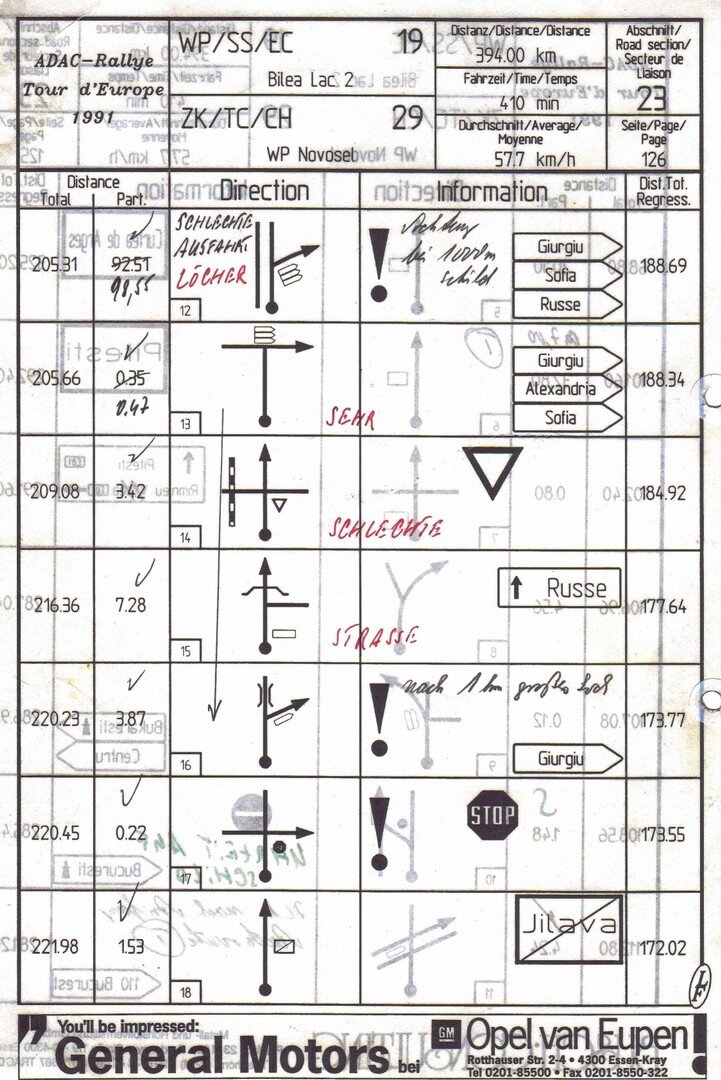 ADAC-Rallye
Tour d'Europe
1991
WP/SS/EC 19
Bilea Lac 2
ZK/TC/CH 29
WP Novosel
Distanz/Distance/Distance
394.00 km
Fahrzeit/Time/Temps
410 min
Durchschnitt/Average/
Moyenne
57.7 km/h
Abschnitt/
Road section/
Secteur de
Liaison
23
Seite/Page/
Page
126
Distance
Total Part.
Direction
Information
Dist.Tot.
Regress.
205.31
92.51
98,55
SCHLECHTE
AUSFAHRT
LÖCHER
12
Achtung
bei 1000m
schild
Giurgiu
Sofia
Russe
188.69
205.66
0.35
0.47
13
SEHR
Giurgiu
Alexandria
Sofia
188.34
209.08
3.42
14
SCHLECHTE
184.92
216.36
7.28
15
STRASSE
Russe
177.64
220.23
3.87
16
nach 1 km großes Loch
Giurgiu
173.77
220.45
0.22
17
STOP
173.55
221.98
1.53
18
Jilava
172.02
You'll be impressed:
General Motors bei
GM
Opel van Eupen!
Rotthauser Str. 2-4 • 4300 Essen-Kray
Tel 0201-85500 • Fax 0201-8550-322